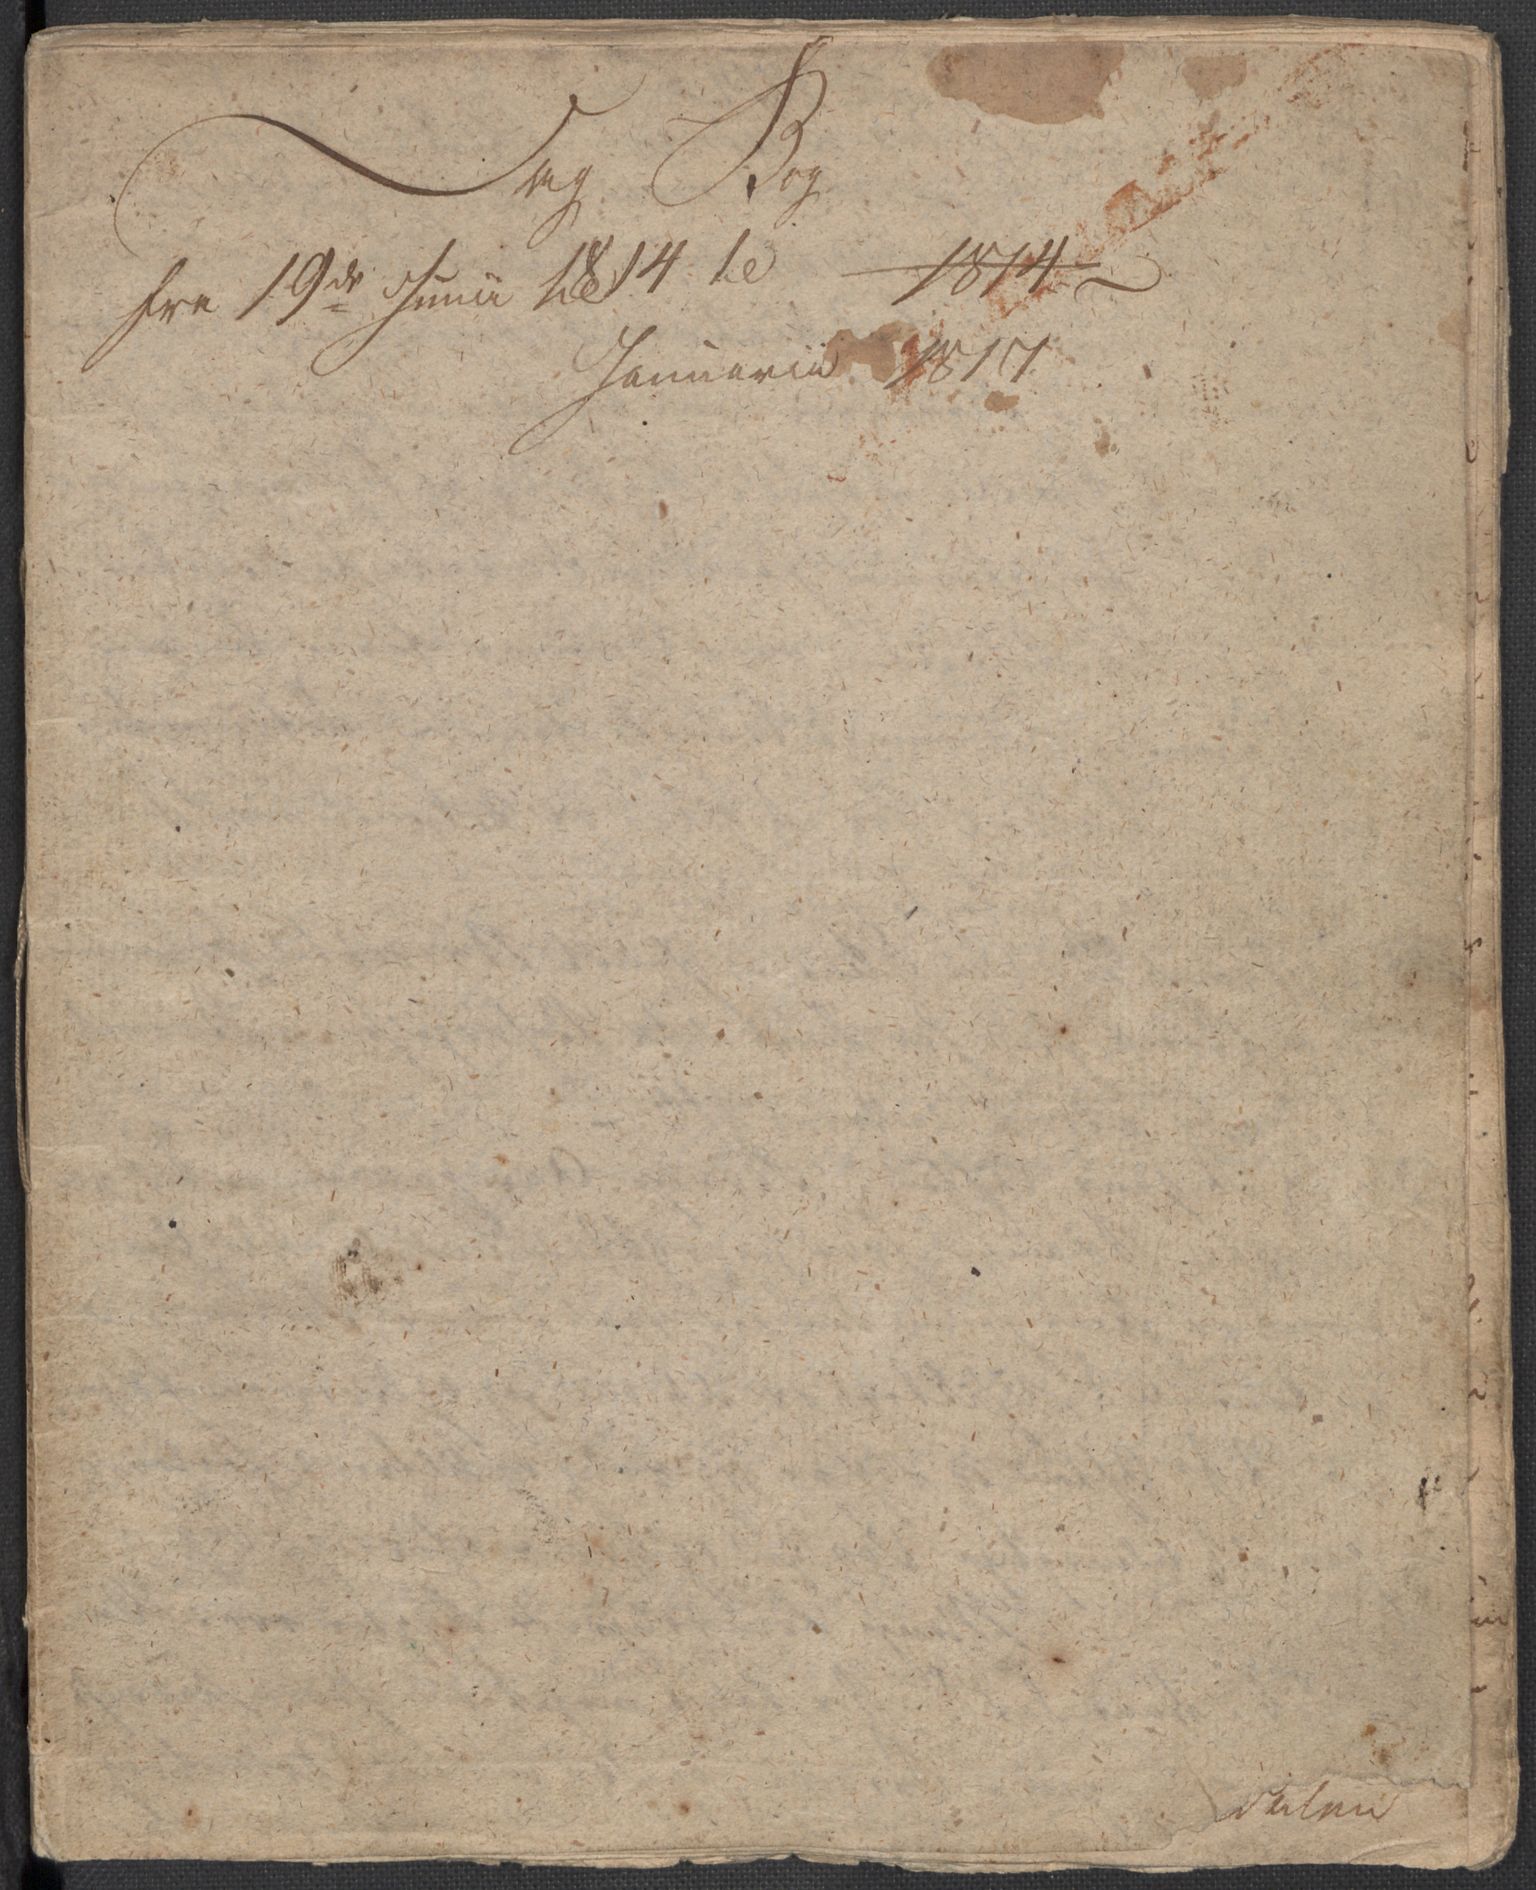 Dag Bog
fra 19de Junii 1814 til 1814
Januarii 1817